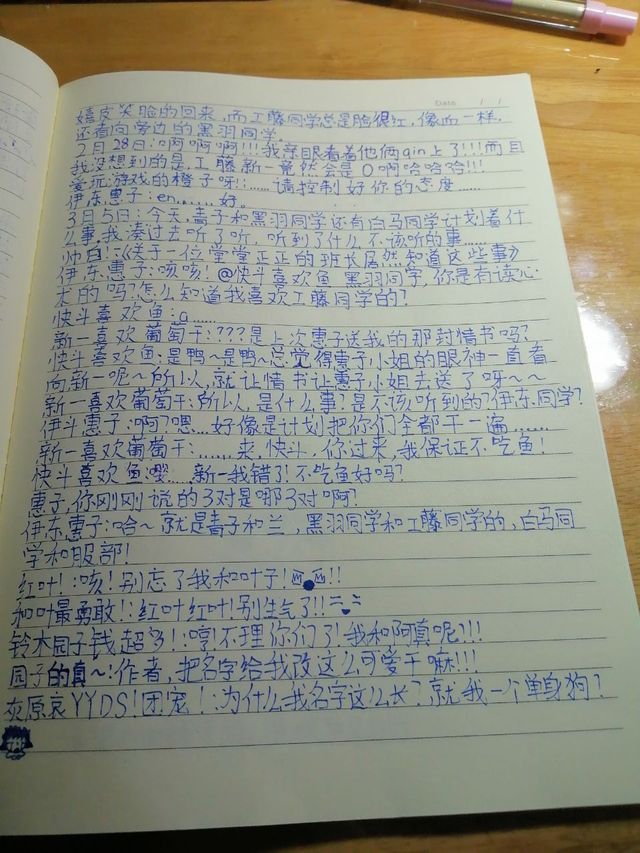 Date / /
嬉皮笑脸的回来,而工藤同学总是脸很红,像血一样,
还看向旁边的黑羽同学。
2月28日:啊啊啊!!!我亲眼看着他俩qin上了!!!而且
我没想到的是,工藤新一竟然会是0啊哈哈哈!!!
爱玩游戏的橙子呀::……请控制好你的态度……
伊东惠子:en……好。
3月5日:今天,青子和黑羽同学还有白马同学计划着什
么事,我凑过去听了听,听到了什么不该听的事……
帅白:《关于一位堂堂正正的班长居然知道这些事》
伊东惠子:咳咳!@快斗喜欢鱼 黑羽同学,你是有读心
术的吗?怎么知道我喜欢工藤同学的?
快斗喜欢鱼:a……
新一喜欢葡萄干:???是上次惠子送我的那封情书吗?
快斗喜欢鱼:是鸭~是鸭~总觉得惠子小姐的眼神一直看
向新一呢~所以,就让情书让惠子小姐去送了呀~~
新一喜欢葡萄干:所以,是什么事?是不该听到的?伊东同学?
伊斗惠子:啊?嗯…好像是计划把你们全都干一遍……
新一喜欢葡萄干:……来,快斗,你过来,我保证不吃鱼!
快斗喜欢鱼:嘤……新一我错了!不吃鱼好吗?
惠子,你刚刚说的3对是哪3对啊?
伊东惠子:哈~就是青子和兰,黑羽同学和工藤同学的,白马同
学和服部!
红叶!:咳!别忘了我和叶子!!!
和叶最勇敢!:红叶红叶!别生气了!!
铃木园子钱超多!:哼!不理你们了!我和阿真呢?!!
园子的真~:作者,把名字给我改这么可爱干嘛!!!
灰原哀YYDS!团宠!:为什么我名字这么长?就我一个单身狗?